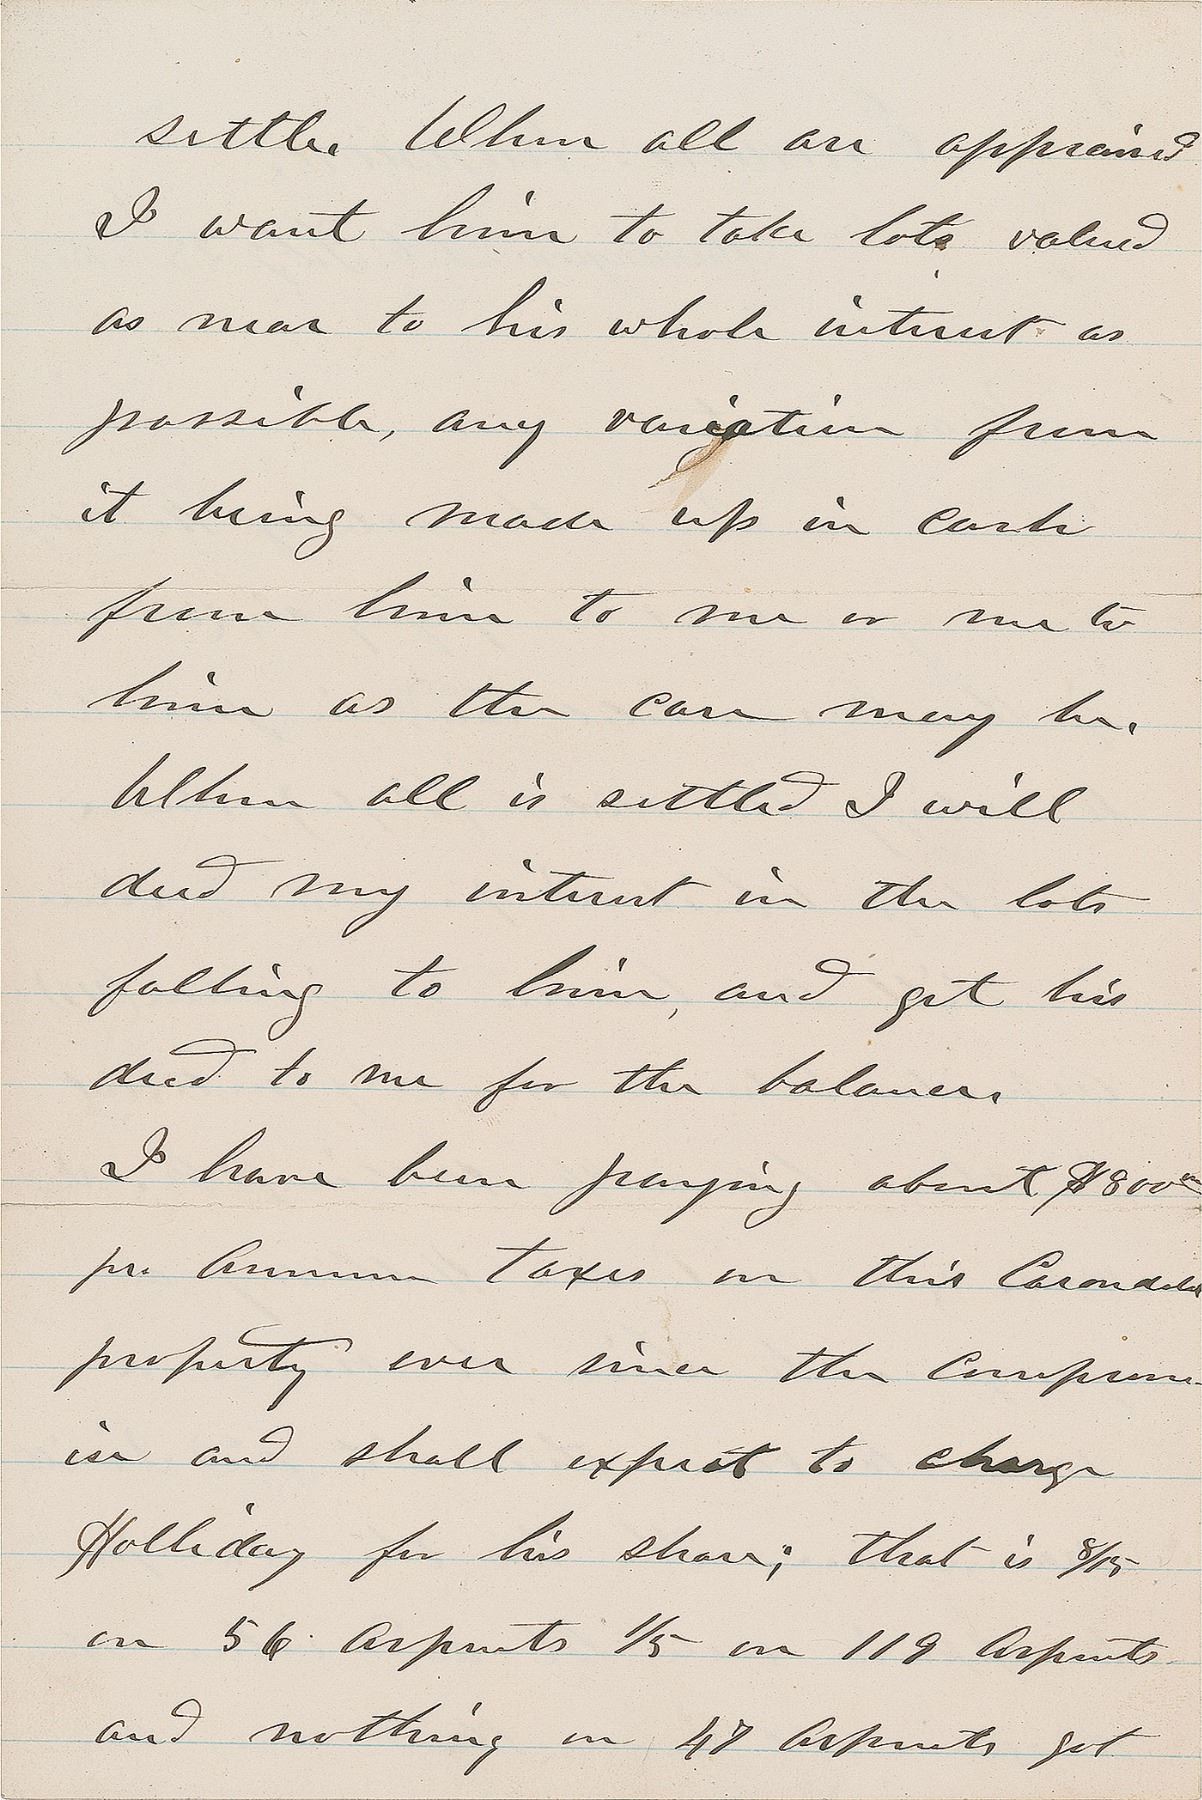 settle. When all are appraised
I want him to take lots valued
as near to his whole interest as
possible, any variation from
it being made up in cash
from him to me or me to
him as the case may be.
When all is settled I will
deed my interest in the lots
falling to him, and get his
deed to me for the balance.
I have been paying about $800
pr. Annum taxes on this Carondelet
property ever since the Comprom-
ise and shall expect to charge
Holliday for his share; that is 8/15
on 56 Arpents 1/5 on 119 Arpents
and nothing on 47 Arpents got